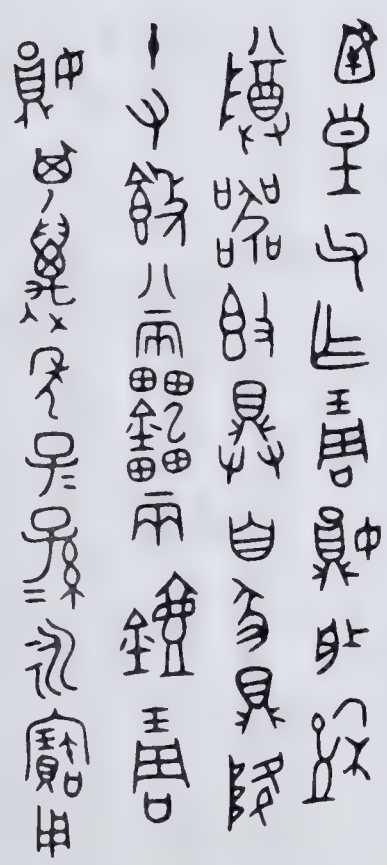 函皇父乍琱娟般盉
尊器𣪘具自豕鼎降
十又𣪘八兩鑘兩鐘琱
娟其萬年子=孫=永寶用